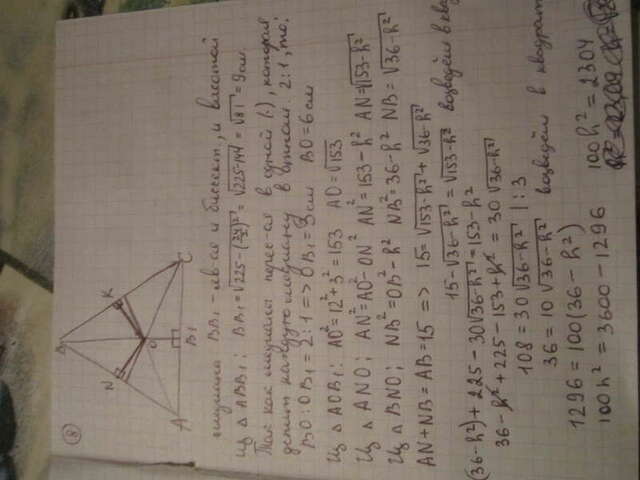 8
B
N
K
O
A
B1
C
медиана BB₁ - яв-ая и биссект., и высотой
Из △ ABB₁: BB₁ = √225-(24/2)² = √225-144 = √81 = 9 см.
Так как медианы перес-ая в одной (·), которая
делит каждую медиану в отнош. 2:1, то:
BO:OB₁ = 2:1 => OB₁ = 3 см BO = 6 см
Из △ AOB₁: AO² = 12² + 3² = 153 AO = √153
Из △ ANO: AN² = AO² - ON² AN² = 153 - h² AN = √153-h²
Из △ BNO: NB² = OB² - h² NB² = 36 - h² NB = √36-h²
AN + NB = AB = 15 => 15 = √153-h² + √36-h²
15 - √36-h² = √153-h² возведём в ква
(36-h²) + 225 - 30√36-h² = 153-h²
36 - h² + 225 - 153 + h² = 30√36-h²
108 = 30√36-h² |:3
36 = 10√36-h² возведём в квадрат
1296 = 100(36-h²)
100h² = 3600 - 1296
100h² = 2304